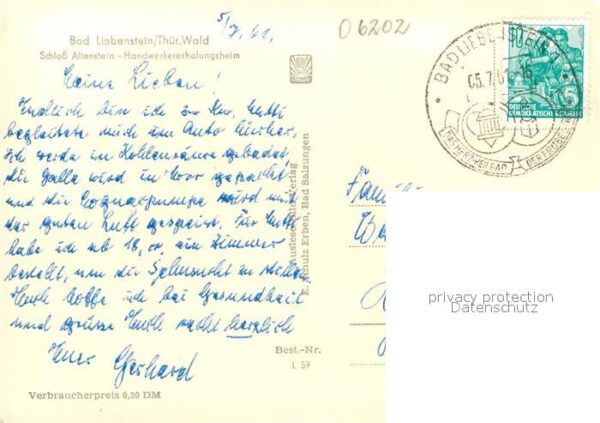 5/7.61.
06202
Bad Liebenstein/Thür.Wald
Schloß Altenstein - Handwerkererholungsheim
Meine Lieben!
Endlich bin ich zur Kur. Mutti
begleitete mich im Auto hierher.
Ich werde in Kohlensäure gebadet,
die Galle wird in Moor gepackt
und die Cognacpumpe wird mit
der guten Luft gespeist. Für Mutti
habe ich ab 18. ein Zimmer
bestellt, um die Sehnsucht zu stillen.
Euch hoffe ich bei Gesundheit
und grüsse Euch recht herzlich
Euer Gerhard
Verbraucherpreis 0,20 DM
Auslese-Bild-Verlag
E. Schulz Erben, Bad Salzungen
Best.-Nr.
L 59
BAD LIEBENSTEIN
05.7.61-16
DEUTSCHE
DEMOKRATISCHE REPUBLIK
15
Famili
privacy protection
Datenschutz